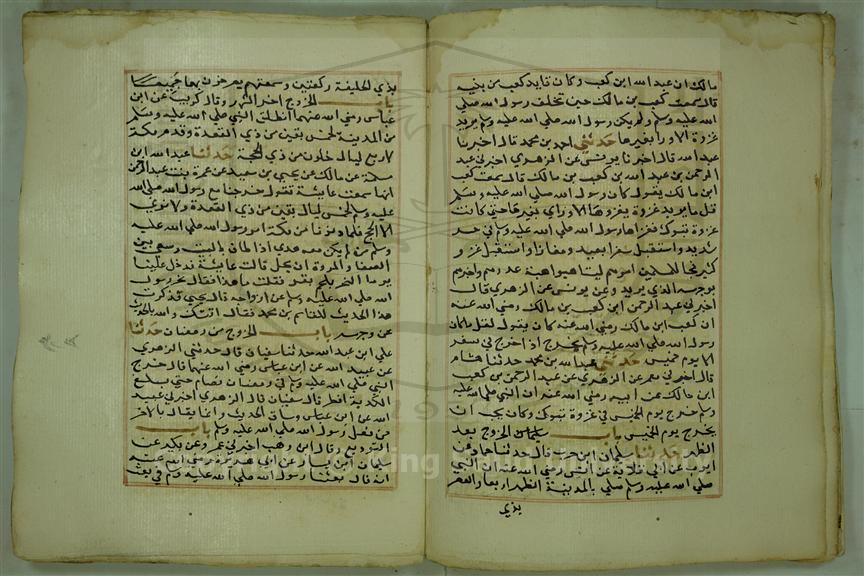 مالك ان عبد الله ابن كعب وكان قايد كعب من بنيه
قال سمعت كعب بن مالك حين تخلف رسول الله صلي
الله عليه وسلم ولم يكن رسول الله صلي الله عليه وسلم يريد
غزوة الا ورا بغيرها حدثني احمد بن محمد قال اخبرنا
عبد الله قال اخبرنا يونس عن الزهري اخبرني عبد
الرحمن بن عبد الله بن كعب بن مالك قال سمعت كعب
ابن مالك يقول كان رسول الله صلي الله عليه وسلم
قل ما يريد غزوة يغزوها الا وراي بغيرها حتي كانت
غزوة تبوك فغزاها رسول الله صلي الله عليه وسلم في حر
شديد واستقبل سفرا بعيد ومفازا واستقبل غزو
كثير فجلا للمسلمين امرهم ليتاهبوا اهبة عدوهم واخبرهم
بوجهه الذي يريد وعن يونس عن الزهري قال
اخبرني عبد الرحمن ابن كعب بن مالك رضي الله عنه
ان كعب ابن مالك رضي الله عنه كان يقول لقل ما كان
رسول الله صلي الله عليه وسلم يخرج اذا خرج في سفر
الا يوم خميس حدثني عبد الله بن محمد حدثنا هشام
قال اخبرني معمر عن الزهري عن عبد الرحمن بن كعب
ابن مالك عن ابيه رضي الله عنه ان النبي صلي الله عليه
وسلم خرج يوم الخميس في غزوة تبوك وكان يحب ان
يخرج يوم الخميس باب الخروج بعد
الظهر حدثنا سليمان ابن حرب قال حدثنا حماد عن
ايوب عن ابي قلابة عن انس رضي الله عنه ان النبي
صلي الله عليه وسلم صلي بالمدينة الظهر اربعا والعصر
بذي
بذي الحليفة ركعتين وسمعتهم يصرخون بهما جميعا
باب الخروج اخر الشهر وقال كريب عن ابن
عباس رضي الله عنهما انطلق النبي صلي الله عليه وسلم
من المدينة لخمس بقين من ذي القعدة وقدم مكة
لاربع ليال خلون من ذي الحجة حدثنا عبد الله ابن
مسلمة عن مالك عن يحيي بن سعيد عن عمرة بنت عبد الرحمن
انها سمعت عايشة تقول خرجنا مع رسول الله صلي الله
عليه وسلم لخمس ليال بقين من ذي القعدة ولا نري
الا الحج فلما دنونا من مكة امر رسول الله صلي الله عليه
وسلم من لم يكن معه هدي اذا طاف بالبيت وسعي بين
الصفا والمروة ان يحل قالت عايشة فدخل علينا
يوم النحر بلحم بقر فقلت ما هذا فقال نحر رسول
الله صلي الله عليه وسلم عن ازواجه قال يحيي فذكرت
هذا الحديث للقاسم بن محمد فقال اتتك والله بالحديث
علي وجهه باب الخروج من رمضان حدثنا
علي ابن عبد الله حدثنا سفيان قال حدثني الزهري
عن عبيد الله عن ابن عباس رضي الله عنهما قال خرج
النبي صلي الله عليه وسلم في رمضان فصام حتي بلغ
الكديد افطر قال سفيان قال الزهري اخبرني عبيد
الله عن ابن عباس وساق الحديث وانما يقال بالاخر
من فعل رسول الله صلي الله عليه وسلم باب
التوديع وقال ابن وهب اخبرني عمرو عن بكير عن
سليمان ابن يسار عن ابي هريرة رضي الله عنه
انه قال بعثنا رسول الله صلي الله عليه وسلم في بعث